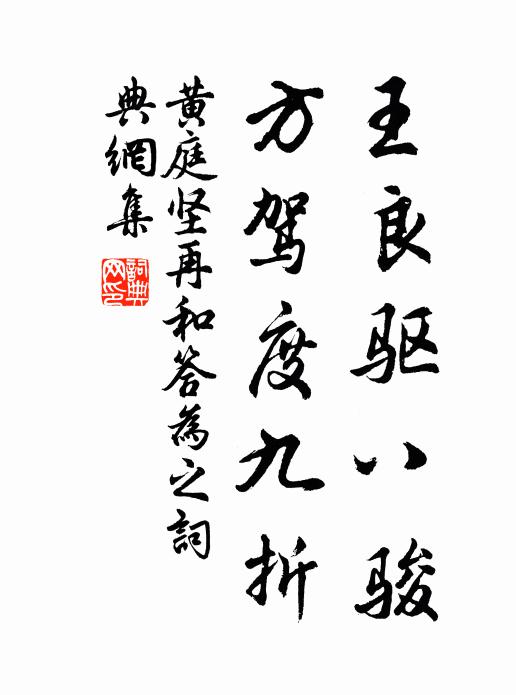 王良驱八骏
方驾度九折
黄庭坚再和答為之詞
典網集
詞典
网印